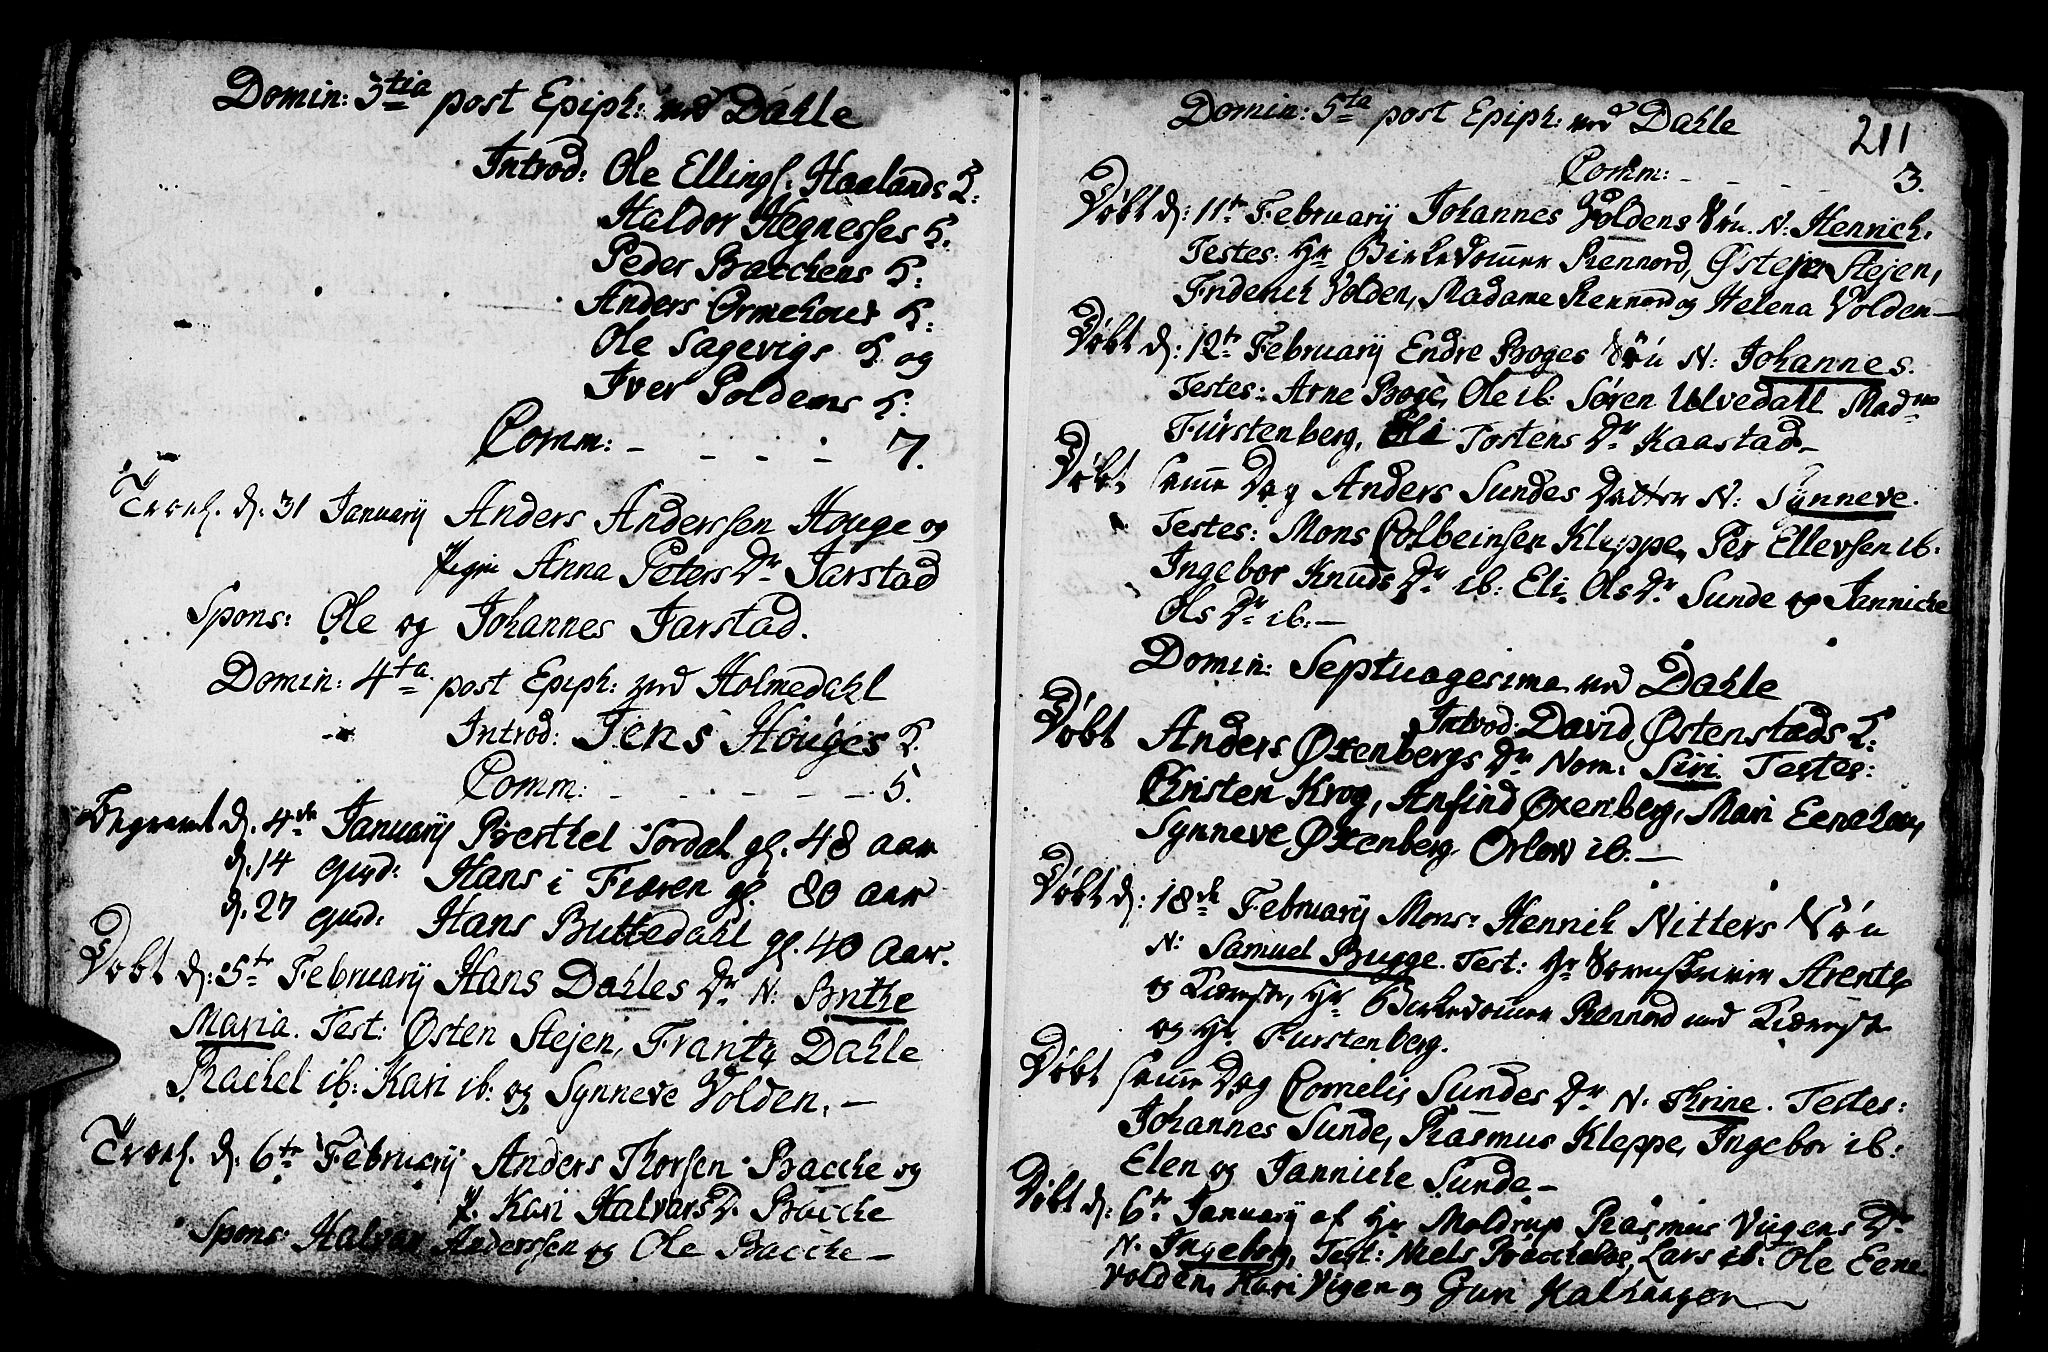 Domin: 3tia post Epiph: ved Dahle
Introd: Ole Ellings. Haalands K:
Haldor Hegnesses K.
Peder Bacchens K:
Anders Ormehous K:
Ole Sagevigs K. og
Iver Poldens K.
Comm: - - - - - 7.
d. 31 January Anders Anderssen Houge og
Pigen Anna Peters Dr Jarstad
Spons: Ole og Johannes Jarstad.
Domin: 4ta post Epiph: ved Holmedahl
Introd: Jens Houges K.
Comm: - - - - - - 5.
Begravet d. 4de January Berthel Sordal gl. 48 aar
d. 14 ejusd: Hans i Fiæren gl. 80 aar
d. 27 ejusd: Hans Buttedahl gl. 40 Aar.
Døbt d: 5te February Hans Dahles Dr N: Brithe
Maria. Test: Østen Stejen, Frantz Dahle
Rachel ib: Kari ib: og Synneve Volden. -
d. 6te February Anders Thorsen Bacche og
P. Kari Halvars D. Bacche
Spons: Halvar Anderssen og Ole Bacche -
211
Domin: 5ta post Epiph: ved Dahle
Comm: - - - - 3.
Døbt d: 11te February Johannes Voldens Søn N: Henrich.
Testes: Hr Birkedommer Rennord, Østen Stejen,
Friderich Volden, Madame Rennord og Helena Volden -
Døbt d: 12te February Endre Boges Søn N: Johannes.
Testes: Arne Boge, Ole ib: Søren Ulvedahl Mad
Fürstenberg, Eli Tostens Dr Kaastad -
Døbt samme Dag Anders Sundes Datter N: Synneve.
Testes: Mons Colbeinsen Kleppe, Per Ellevsen ib.
Ingebor Knuds Dr ib: Eli Ols Dr Sunde og Jannicke
Ols Dr ib. -
Domin: Septuagesima ved Dahle
Introd: David Østenstads K:
Døbt Anders Oxenbergs Dr Nom: Siri. Testes:
Christen Krog, Anfind Oxenberg, Mari
Synneve Oxenberg ib. -
Døbt d: 18de February Mons: Henrich Nitters Søn
N: Samuel Bugge. Test: Hr Sorenskriver Arentz
og Kiæreste, Hr Birkedommer Rennord med Kiæreste
og Hr. Furstenberg.
Døbt samme Dag Cornelis Sundes Dr N. Thrine. Testes:
Johannes Sunde, Rasmus Kleppe, Ingebor ib:
Elen og Jannicke Sunde -
Døbt d. 6te January af Hr Moldrup Rasmus Viigens Dr
N. Ingeborg, Test: Niels Lars ib. Ole
Volden, Kari Vigen og Guri Kalhaugen